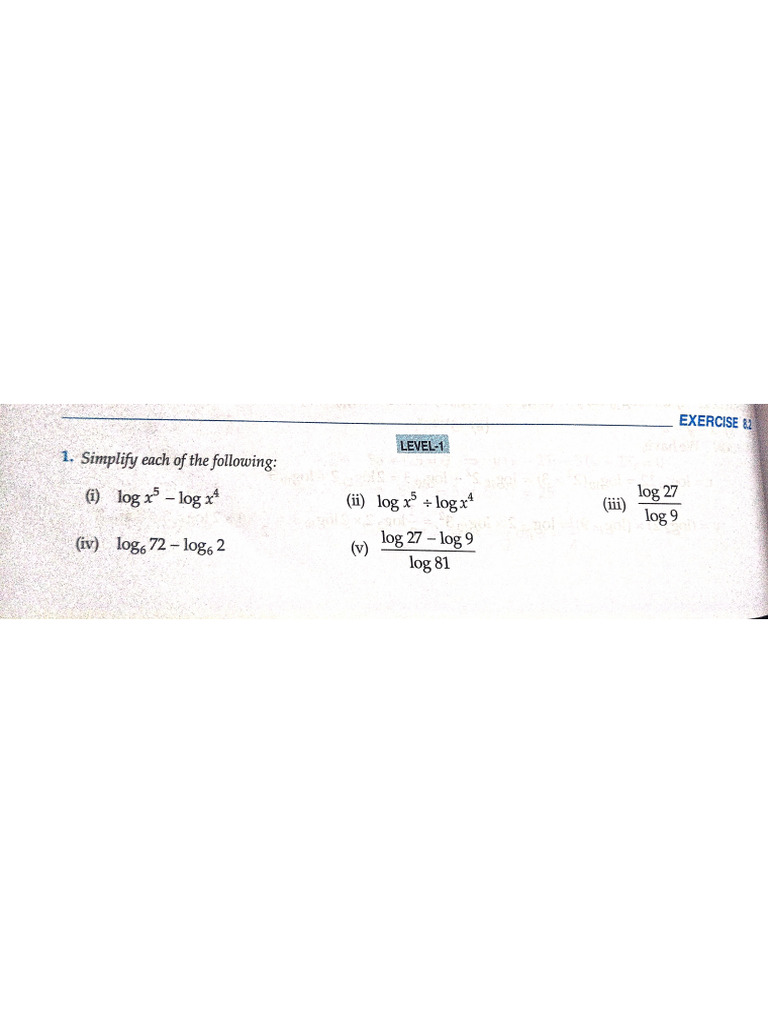 EXERCISE 8.2
LEVEL-1
1. Simplify each of the following:
(i) log x⁵ – log x⁴ (ii) log x⁵ ÷ log x⁴ (iii) log 27 / log 9
(iv) log₆ 72 – log₆ 2 (v) log 27 – log 9 / log 81